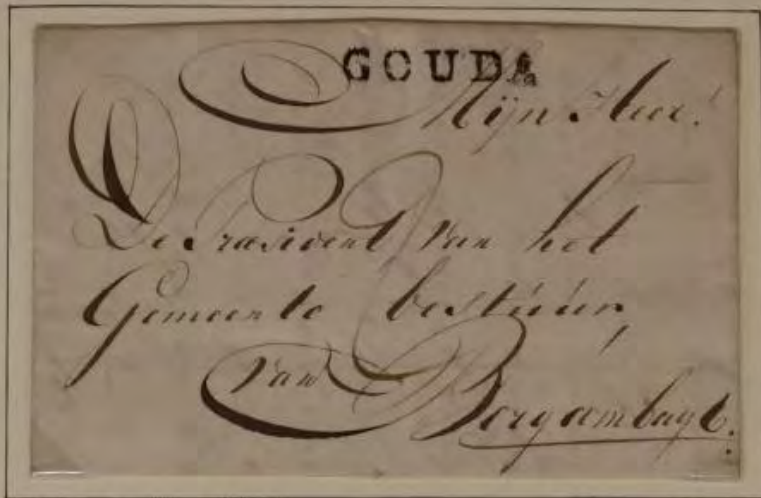 GOUDA
Mijn Heer!
De Præsident van het
Gemeente bestúúr,
van Bergambagt.